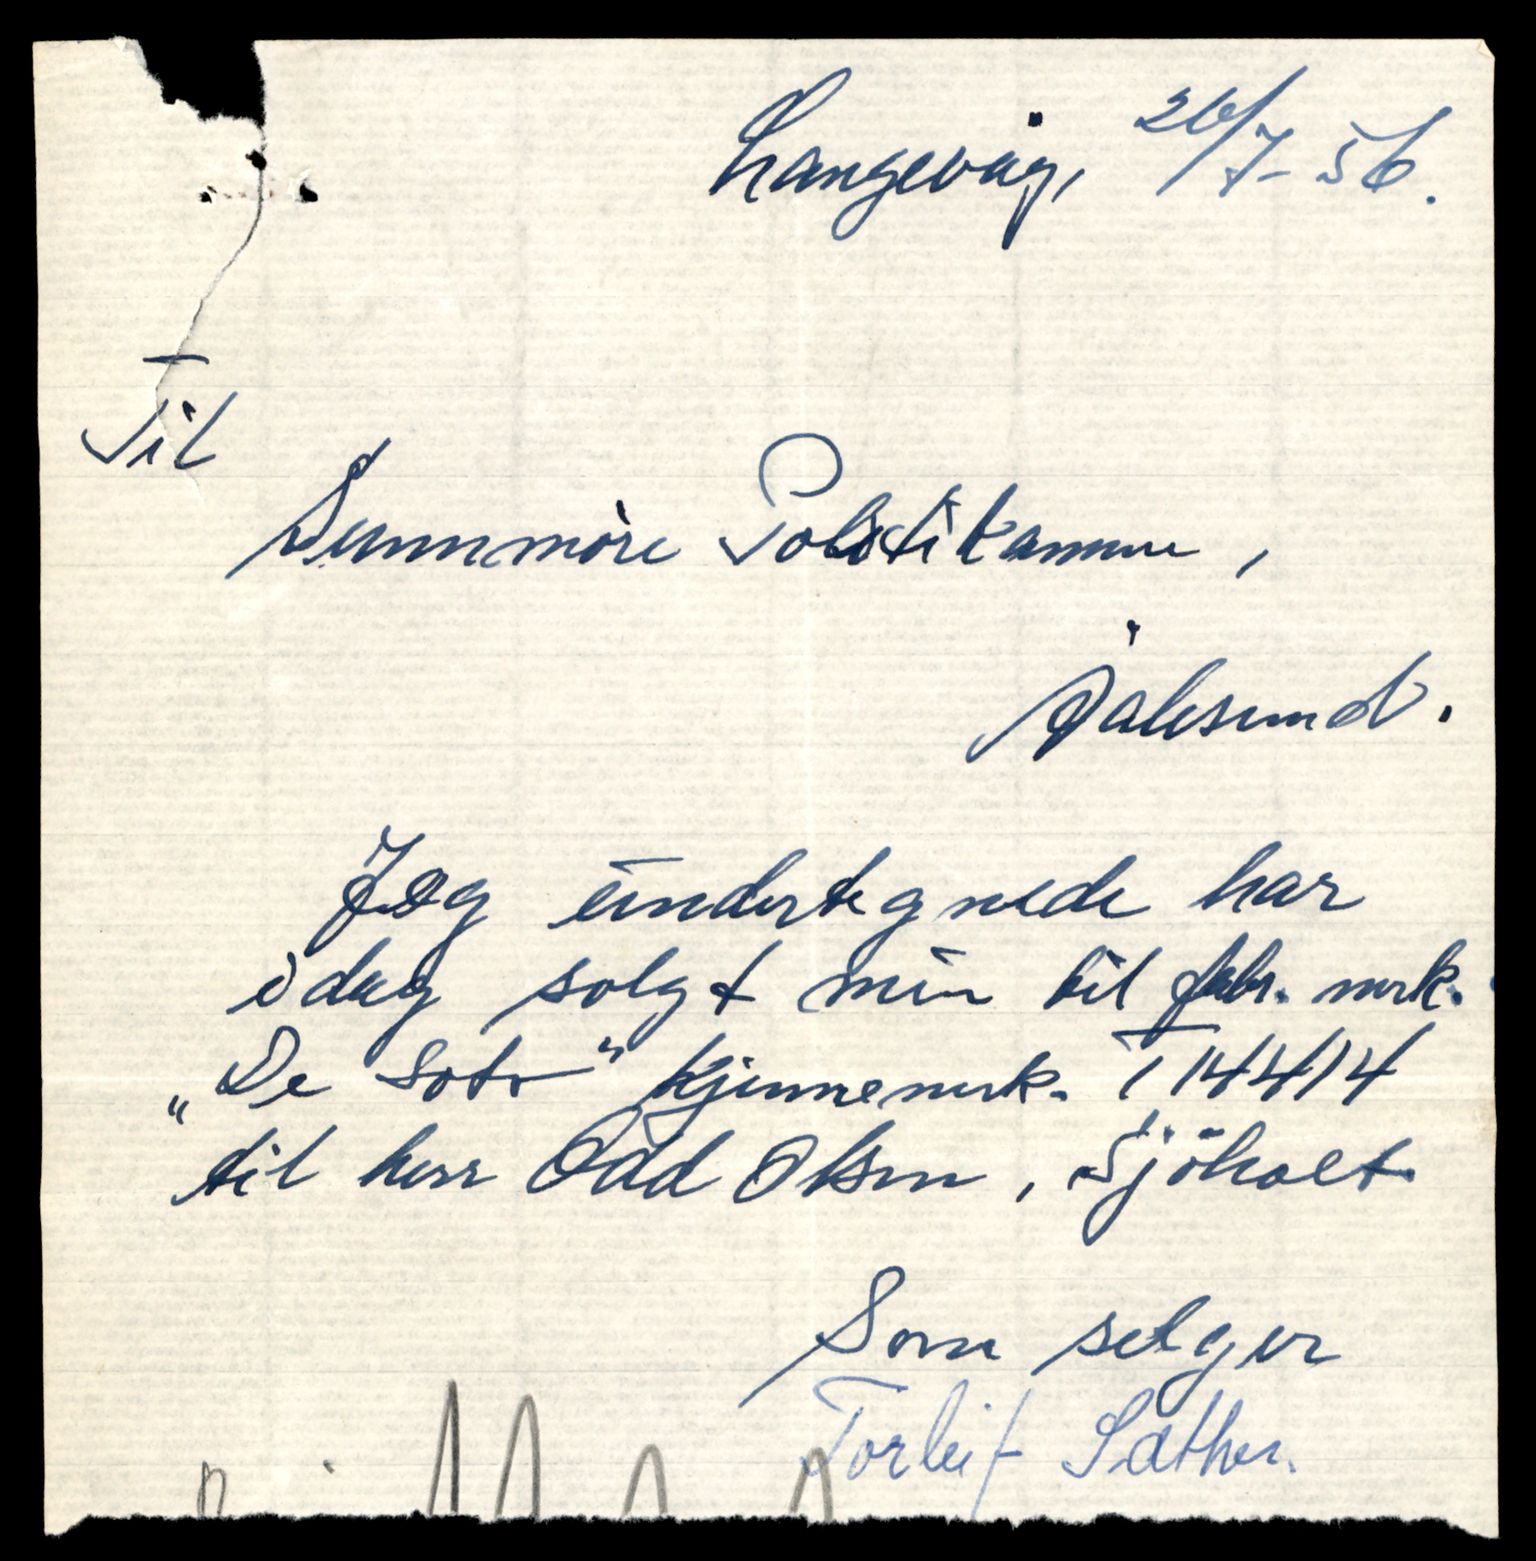 Langevåg, 26/7-56.
Til
Sunnmöre Politikammer,
Aalesund.
Jeg undertegnede har
idag solgt min bil fabr. merk.
„De Soto" kjennemerk. T 14414
til herr Odd Olsen, Sjöholt.
Som selger
Torleif Sæther.